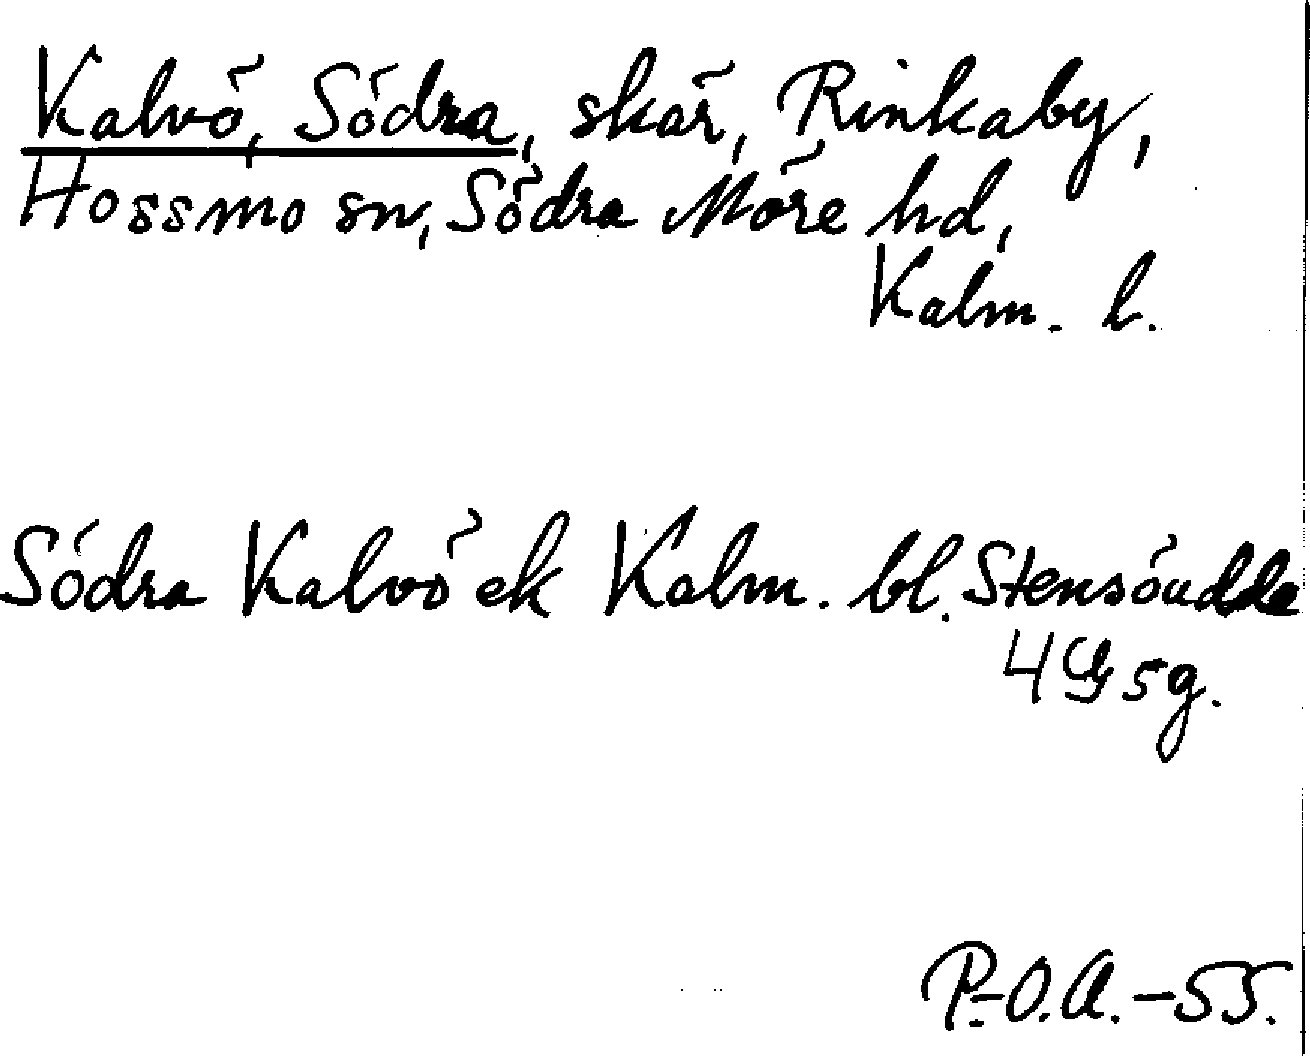 Kalvö, Södra, skär, Rinkaby,
Hossmo sn, Södra Möre hd,
Kalm. l.
Södra Kalvö ek Kalm. bl. Stensöudde
4G 5g.
P.-O.A.-55.